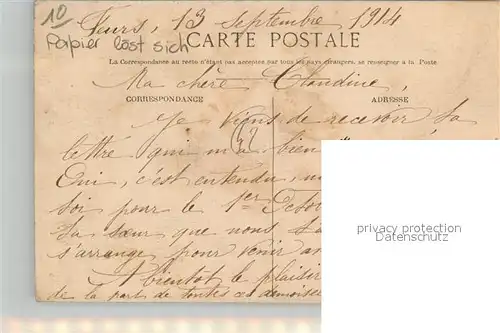 10
Papier löst sich
Feurs, 13 Septembre 1914
CARTE POSTALE
La Correspondance au recto n'était pas acceptée par tous les pays étrangers, se renseigner à la Poste
Ma chère Claudine,
CORRESPONDANCE ADRESSE
Je viens de recevoir ta
lettre qui m'a bien
Oui, c'est entendu,
toi pour le 1er Octo
ta sœur que nous
s'arrange pour venir
A bientôt le plaisir
de la part de toutes ces demoise
privacy protection
Datenschutz